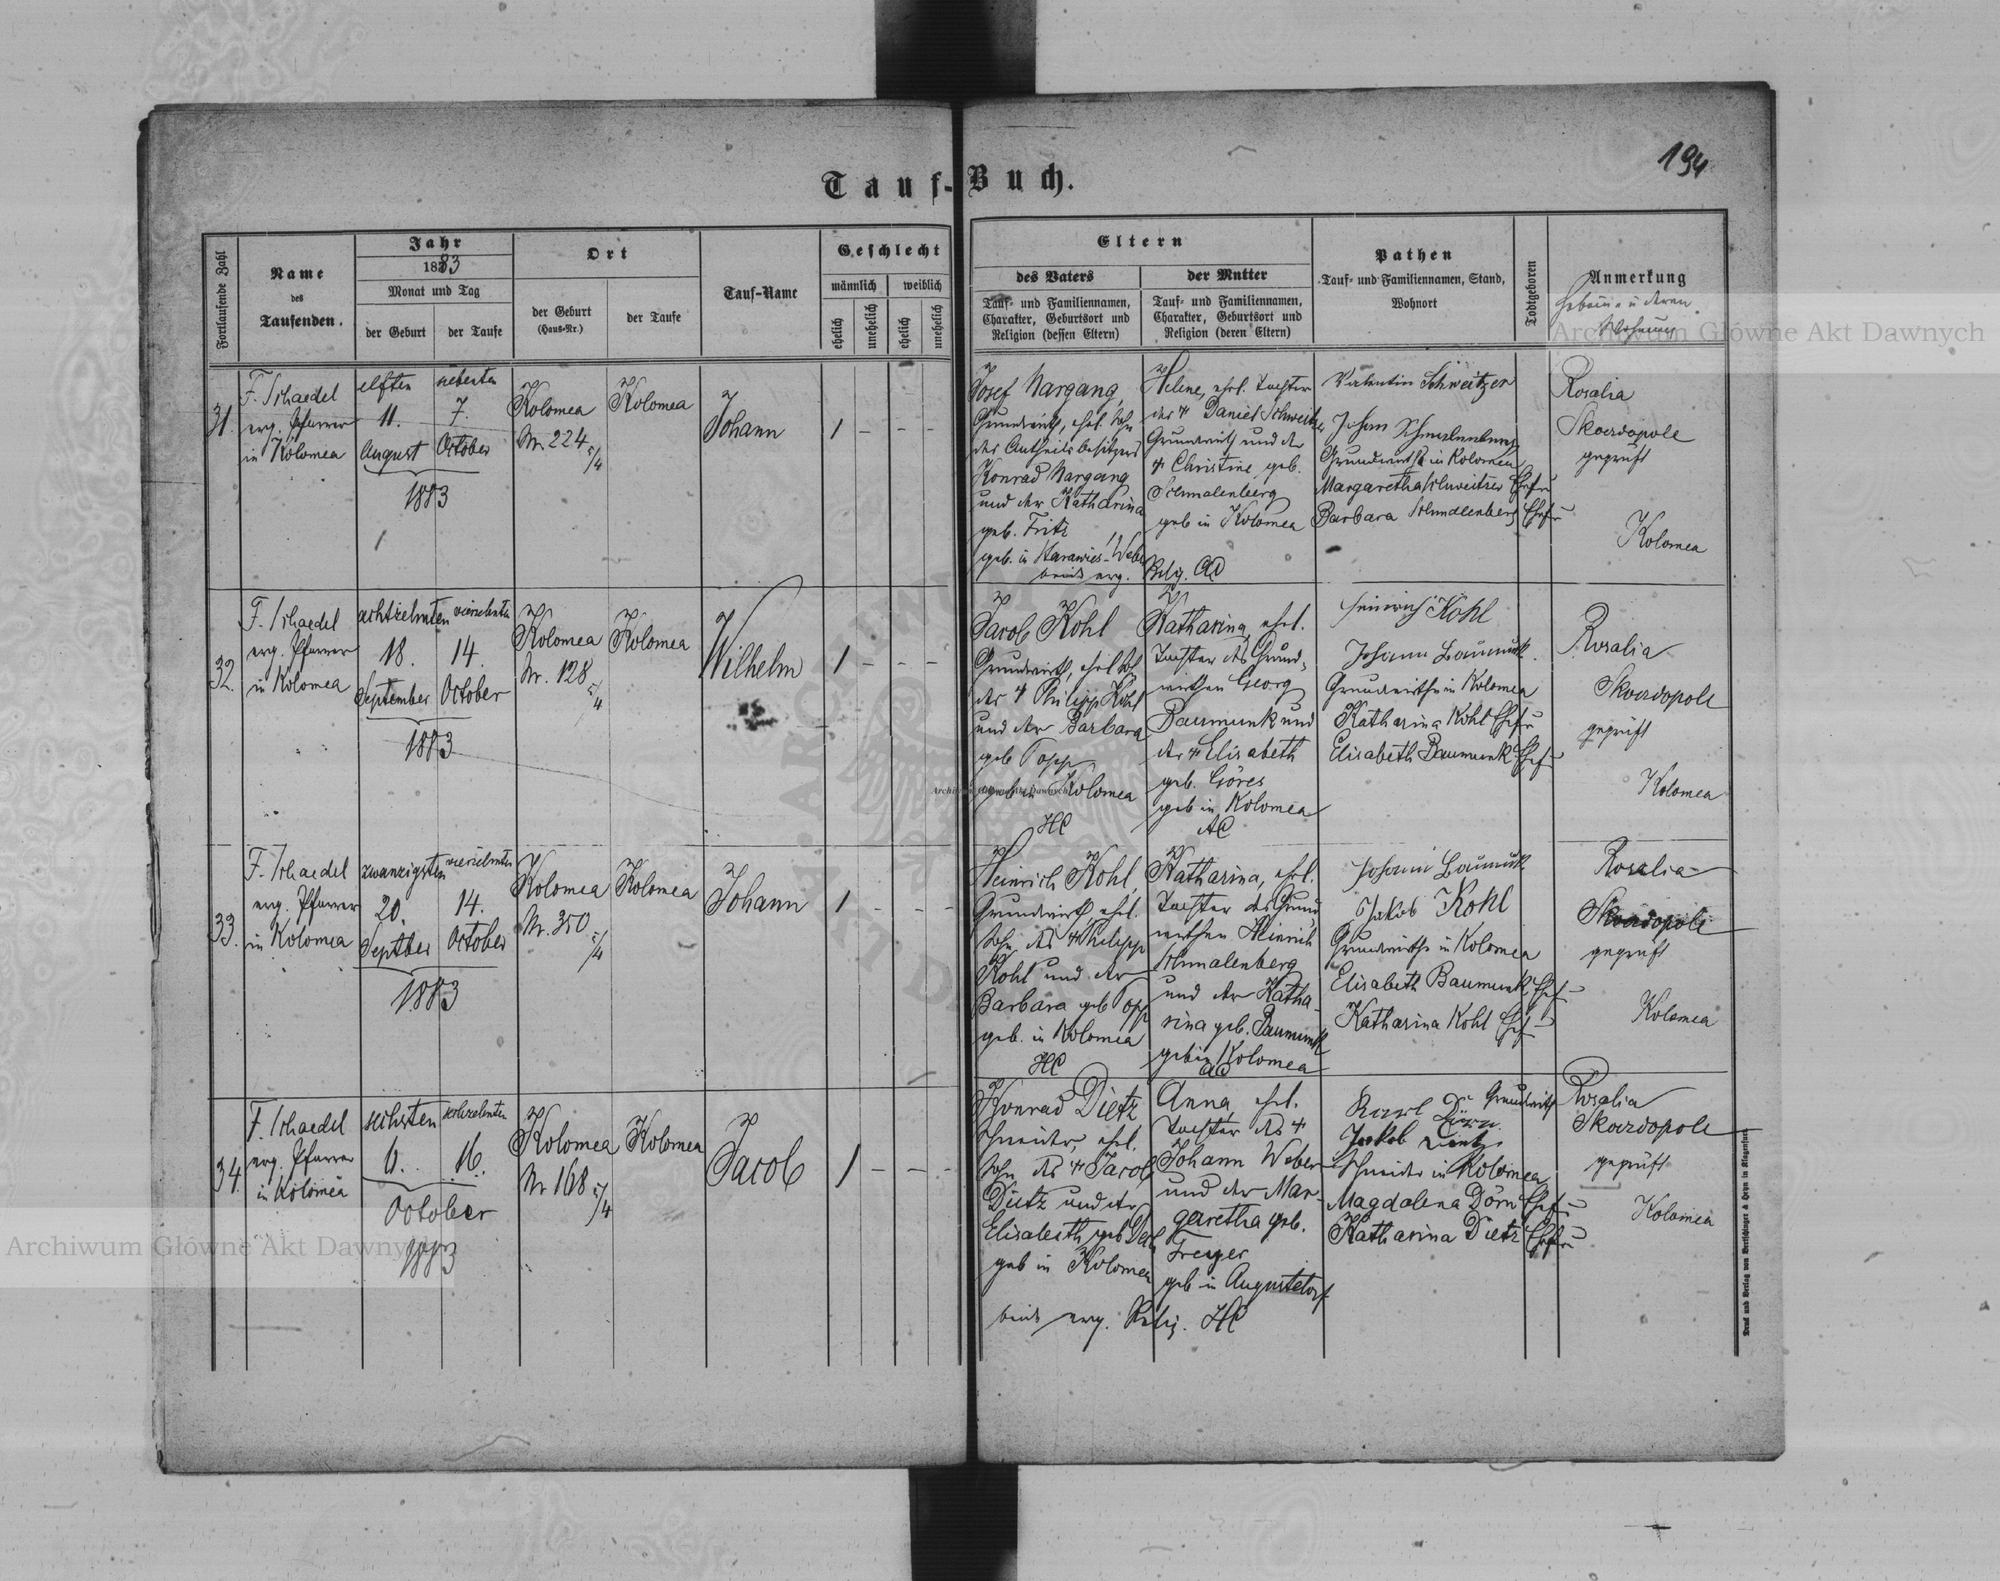 194
Tauf-Buch.
Fortlaufende Zahl
Name
des
Taufenden.
Jahr
1883
Monat und Tag
der Geburt
der Taufe
Ort
der Geburt
(Haus-Nr.)
der Taufe
Tauf-Name
Geschlecht
männlich
weiblich
ehelich
unehelich
ehelich
unehelich
Eltern
des Vaters
der Mutter
Tauf- und Familiennamen,
Charakter, Geburtsort und
Religion (dessen Eltern)
Tauf- und Familiennamen,
Charakter, Geburtsort und
Religion (deren Eltern)
Pathen
Tauf- und Familiennamen, Stand,
Wohnort
Todtgeboren
Anmerkung
Hebam. u deren
Wohnung
31.
F. Schaedel
evg. Pfarrer
in Kolomea
elften
11.
August
siebenten
7.
October
1883
Kolomea
Nr. 224
Kolomea
Johann
1 – – –
Josef Nargang,
Grundwirth, ehel. Sohn
des Antheilsbesitzers
Konrad Nargang
und der Katharina
geb. Fritz
geb. in
beide evg. Relig. AC
Helene, ehel. Tochter
des † Daniel Schweitzer
Grundwirth und der
† Christine geb.
Schmalenberg
geb in Kolomea
Valentin Schweitzer
Johan Schmalenberg
Grundwirthe in Kolomea
Margaretha Schweitzer Ehefr
Barbara Schmalenberg Ehefr
Rosalia
Skordopole
geprüft
Kolomea
32.
F. Schaedel
evg. Pfarrer
in Kolomea
achtzehnten
18.
September
vierzehnten
14.
October
1883
Kolomea
Nr. 128
Kolomea
Wilhelm
1 – – –
Jacob Kohl
Grundwirth, ehel Sohn
des † Philipp Kohl
und der Barbara
geb Popp
geb in Kolomea
HC
Katharina, ehel.
Tochter des Grund-
wirthen Georg
Baumunk und
der † Elisabeth
geb. Göres
geb in Kolomea
AC
Heinrich Kohl
Johann Baumunk
Grundwirthe in Kolomea
Katharina Kohl Ehefr
Elisabeth Baumunk Ehef
Rosalia
Skordopole
geprüft
Kolomea
33.
F. Schaedel
evg. Pfarrer
in Kolomea
zwanzigsten
20.
Septber
vierzehnten
14.
October
1883
Kolomea
Nr. 350
Kolomea
Johann
1 – – –
Heinrich Kohl,
Grundwirth, ehel.
Sohn des † Philipp
Kohl und der
Barbara geb Popp
geb. in Kolomea
HC
Katharina, ehel.
Tochter des Grund
wirthen Heinrich
Schmalenberg
und der Katha-
rina geb. Baumunk
geb in Kolomea
AC
Johann Baumunk
Jakob Kohl
Grundwirthe in Kolomea
Elisabeth Baumunk Ehef
Katharina Kohl Ehef
Rosalia
Skordopole
geprüft
Kolomea
34.
F. Schaedel
evg. Pfarrer
in Kolomea
sechsten
6.
sechzehnten
16.
October
1883
Kolomea
Nr 168
Kolomea
Jacob
1 – – –
Konrad Dietz
Schneider, ehel.
Sohn des † Jacob
Dietz und der
Elisabeth geb
geb in Kolomea
beide evg. Relig. HC
Anna, ehel.
Tochter des †
Johann Weber
und der Mar-
garetha geb.
Freyer
geb in Augustdorf
Karl Dörn Grundwirth
Jakob Dietz
Schneider in Kolomea
Magdalena Dörn Ehef
Katharina Dietz Ehefr
Rosalia
Skordopole
geprüft
Kolomea
Druck und Verlag von Bertschinger & Heyn in Klagenfurt.
Archiwum Główne Akt Dawnych
Archiwum Główne Akt Dawnych
Archiwum Główne Akt Dawnych